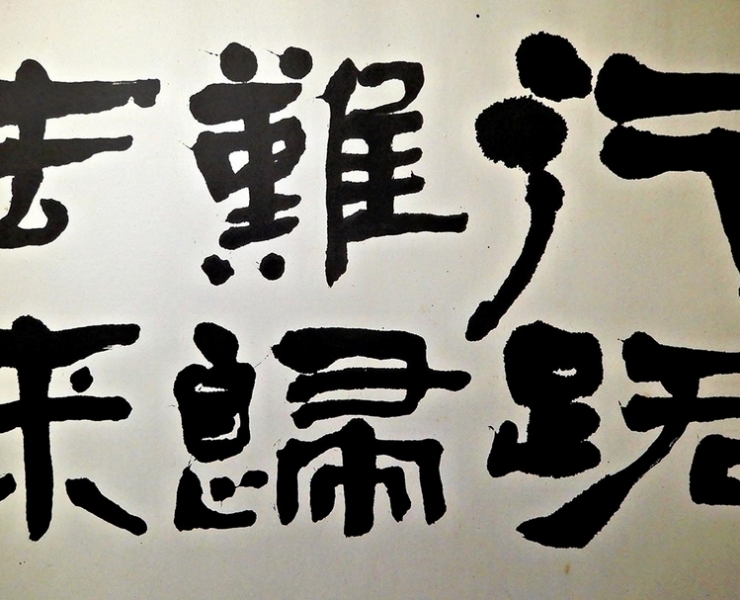 行路
難歸
去来